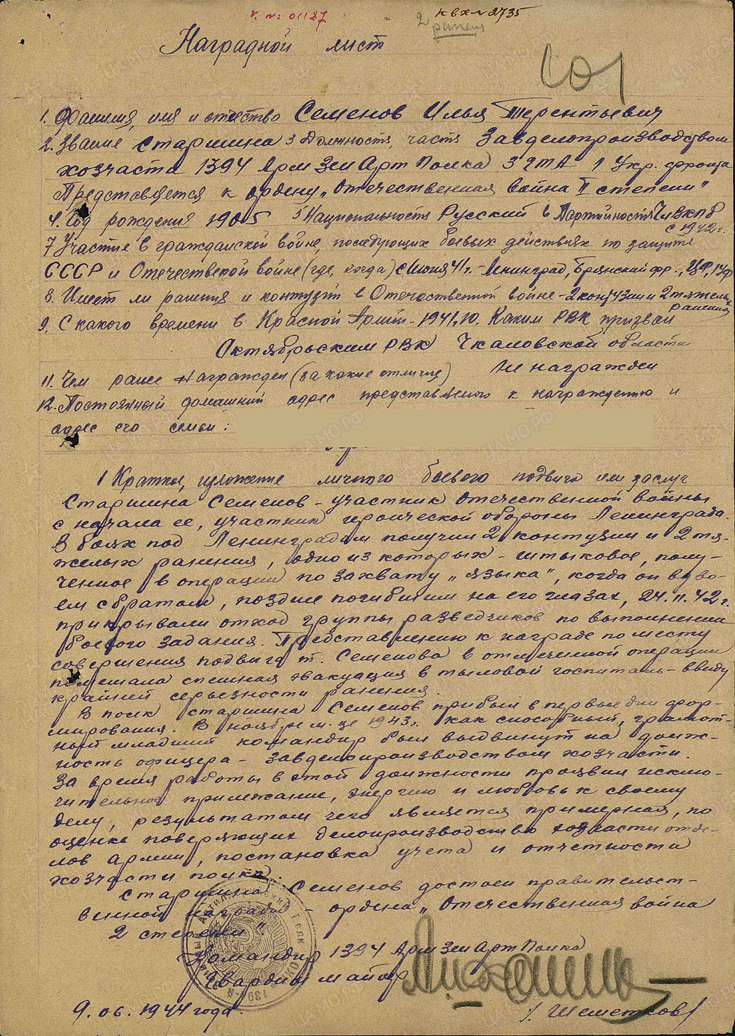 V. n: 01127
КВХ n 2735
2 ранен
101
Наградной лист
1. Фамилия, имя и отчество Семенов Илья Терентьевич
2. Звание Старшина 3 Должность, часть Завделопроизводством
хозчасти 1394 Арм Зен Арт Полка 3 ГТА 1 Укр. фронта
Представляется к ордену „Отечественная война II степени"
4. Год рождения 1905 5 Национальность Русский 6 Партийность Чл ВКПб
с 1942 г.
7 Участие в гражданской войне, последующих боевых действиях по защите
СССР и Отечественой войне (где, когда) с Июня 41 г. - Ленинград, Брянский фр.,
8. Имеет ли ранения и контузии в Отечественной войне - 2 конт и 2 тяжелых
ранения
9. С какого времени в Красной Армии - 1941. 10. Каким РВК призван
Октябрьским РВК Чкаловской области
11. Чем ранее награжден (за какие отличия) Не награжден
12. Постоянный домашний адрес представляемого к награждению и
адрес его семьи:
1 Краткое, изложение личного боевого подвига или заслуг
Старшина Семенов - участник Отечественной войны
с начала ее, участник героической обороны Ленинграда.
В боях под Ленинградом получил 2 контузии и 2 тя-
желых ранения, одно из которых - штыковое, полу-
ченное в операции по захвату „языка", когда он вдво-
ем с братом, позднее погибшим на его глазах, 24.11.42 г.
прикрывали отход группы разведчиков по выполнении
боевого задания. Представлению к награде по месту
совершения подвига т. Семенова в отмеченной операции
помешала спешная эвакуация в тыловой госпиталь - ввиду
крайней серьезности ранения.
В полк старшина Семенов прибыл в первые дни фор-
мирования. В ноябре м-це 1943 г. как способный, грамот-
ный младший командир был выдвинут на долж-
ность офицера - завделопроизводством хозчасти.
За время работы в этой должности проявил исклю-
чительное прилежание, энергию и любовь к своему
делу, результатом чего является примерная, по
оценке поверяющих делопроизводство хозчасти отде-
лов армии, постановка учета и отчетности
хозчасти полка.
Старшина Семенов достоен правительст-
венной награды ордена „Отечественная война
2 степени".
Командир 1394 Арм Зен Арт Полка
Гвардии майор
/ Шеметков /
9.06.1944 года.